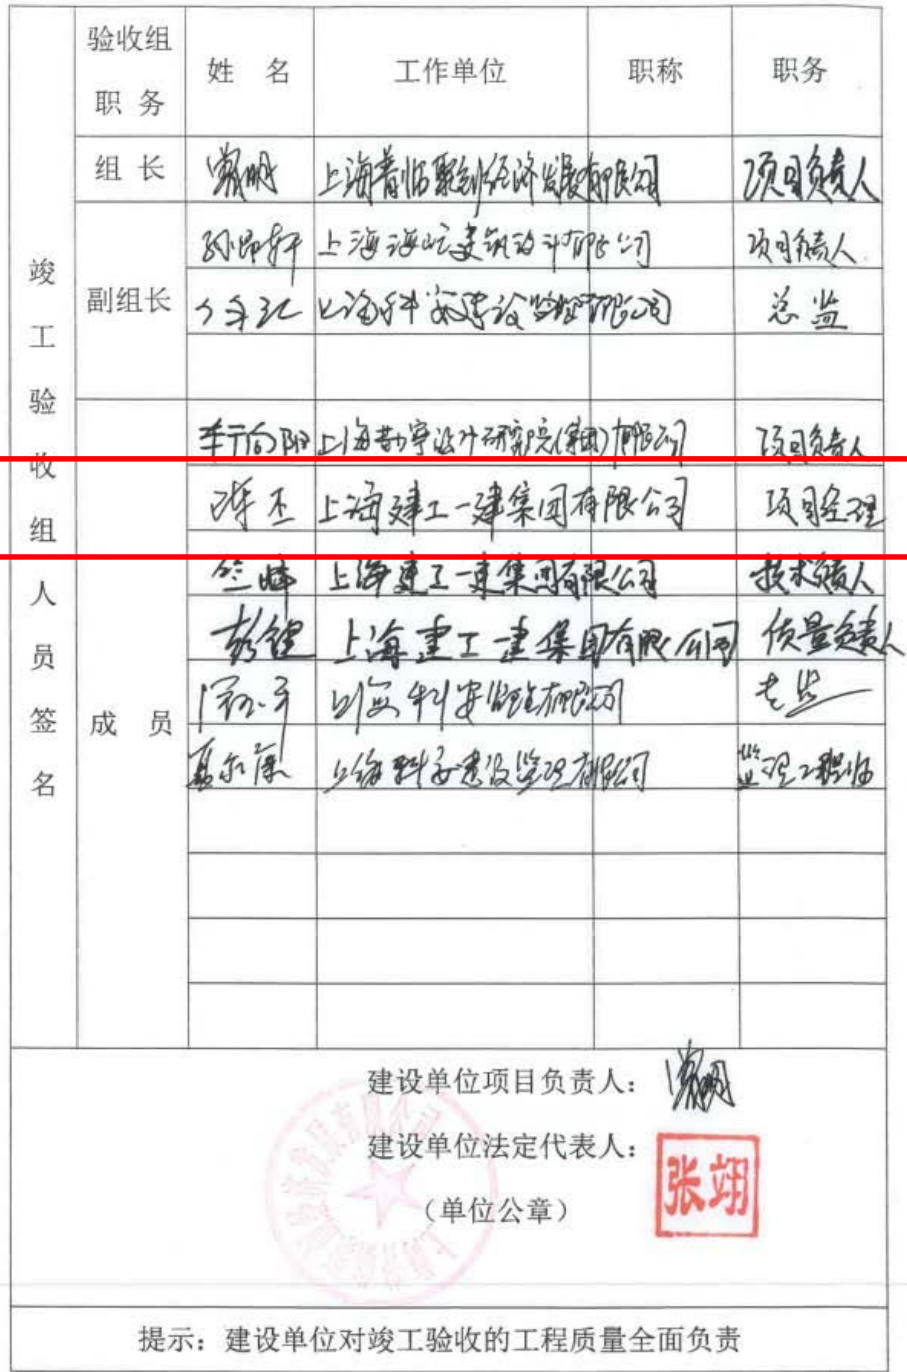 验收组
职 务
姓 名
工作单位
职称
职务
竣工验收组人员签名
组 长
上海普临联创经济发展有限公司
项目负责人
副组长
上海海屹建筑设计有限公司
项目负责人
上海科安建设监理有限公司
总监
成 员
上海勘察设计研究院(集团)有限公司
项目负责人
陈杰
上海建工一建集团有限公司
项目经理
竺峰
上海建工一建集团有限公司
技术负责人
彭健
上海建工一建集团有限公司
质量负责人
上海科安监理有限公司
总监
上海科安建设监理有限公司
监理工程师
建设单位项目负责人:
建设单位法定代表人:
张翊
(单位公章)
提示:建设单位对竣工验收的工程质量全面负责